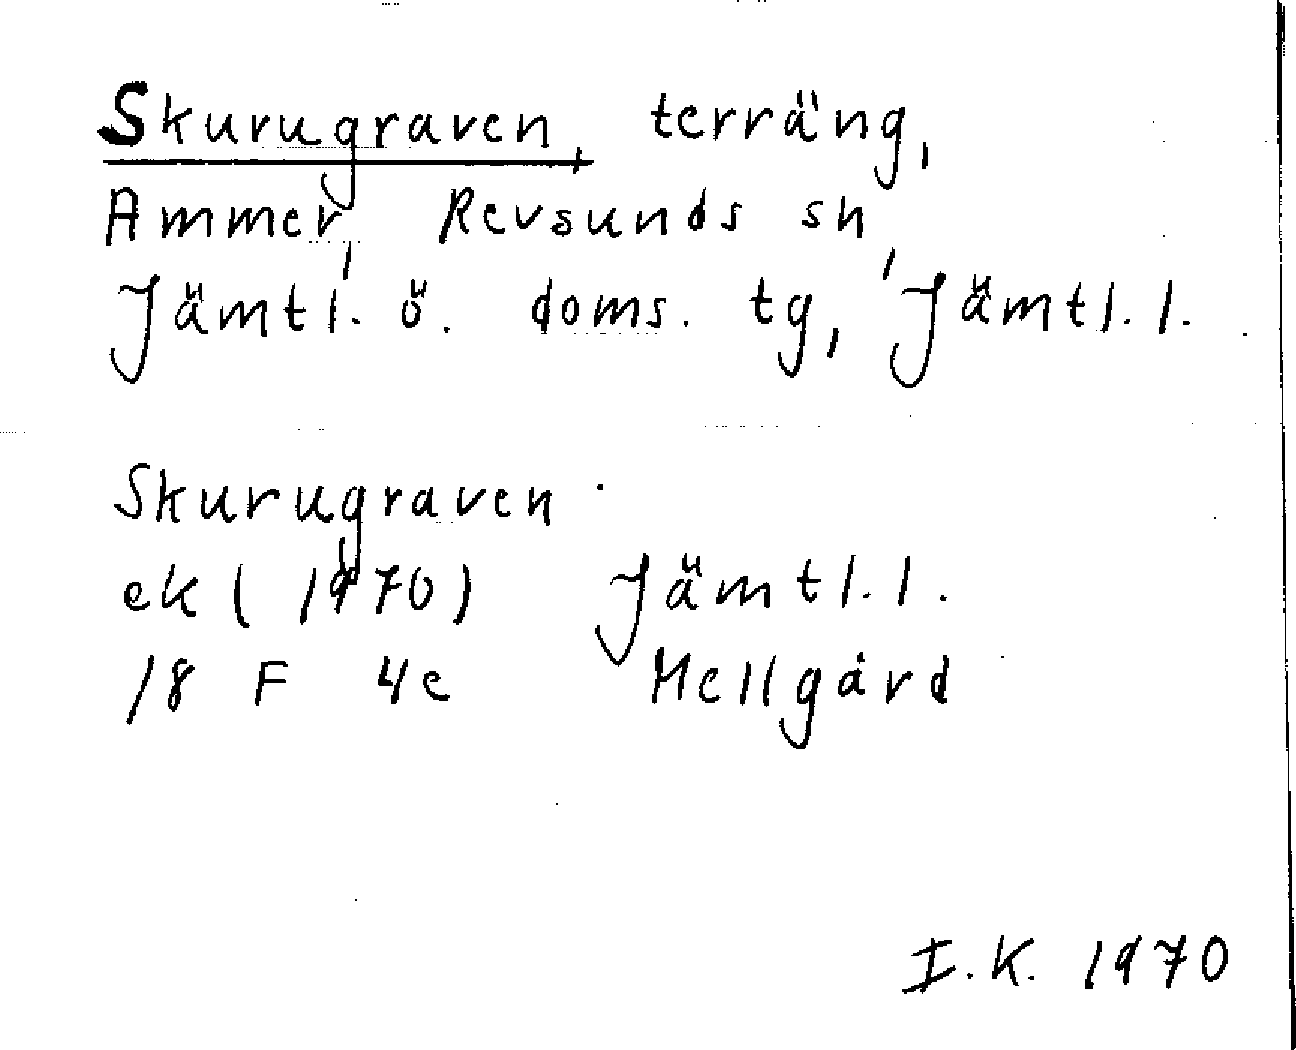 Skurugraven, terräng,
Ammer, Revsunds sn,
Jämtl. ö. doms. tg, Jämtl. l.
Skurugraven
ek (1970) Jämtl. l.
18 F 4e Mellgård
I.K. 1970